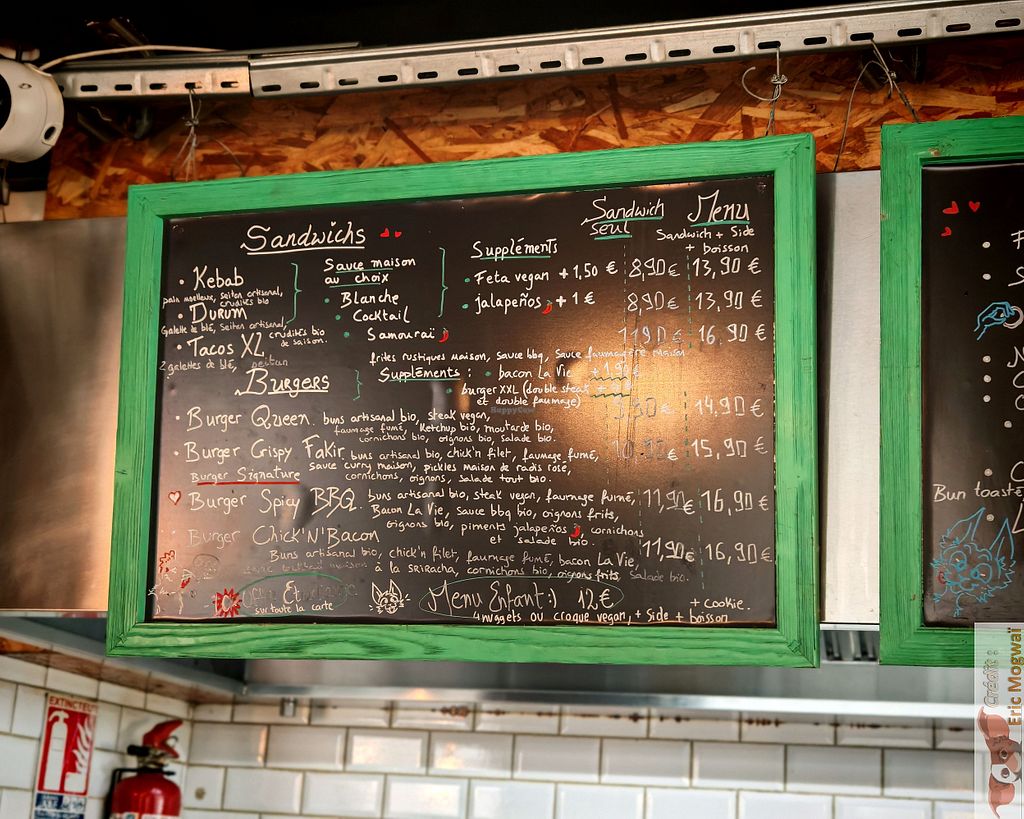 Sandwichs
Sandwich seul
Menu
Sandwich + Side + boisson
Kebab
pain moelleux, seitan artisanal, crudités bio
Durum
Galette de blé, Seitan artisanal, crudités bio de saison.
Tacos XL
2 galettes de blé,
frites rustiques maison, sauce bbq, sauce maison
Sauce maison au choix
Blanche
Cocktail
Samouraï
Suppléments
Feta vegan + 1,50 €
jalapeños + 1 €
8,90 € 13,90 €
8,90 € 13,90 €
11,90 € 16,90 €
Burgers
Suppléments :
bacon La Vie
burger XXL (double steak et double faumage)
Burger Queen buns artisanal bio, steak vegan,
faumage fumé, Ketchup bio, moutarde bio,
cornichons bio, oignons bio, salade bio.
14,90 €
Burger Crispy Fakir buns artisanal bio, chick'n filet, faumage fumé,
sauce curry maison, pickles maison de radis rose,
cornichons, oignons, salade tout bio.
15,90 €
Burger Signature
Burger Spicy BBQ buns artisanal bio, steak vegan, faumage fumé,
Bacon La Vie, sauce bbq bio, oignons frits,
oignons bio, piments jalapeños, cornichons
et salade bio.
11,90 € 16,90 €
Burger Chick'N'Bacon
Buns artisanal bio, chick'n filet, faumage fumé, bacon La Vie,
maison à la SRIRACHA, cornichons bio, oignons frits, salade bio.
11,90 € 16,90 €
sur toute la carte
Menu Enfant :) 12 €
4 nuggets ou croque vegan, + Side + boisson
+ cookie.
Bun toasté
HappyCow
EXTINCTEUR
Crédit :
Eric Mogwaï